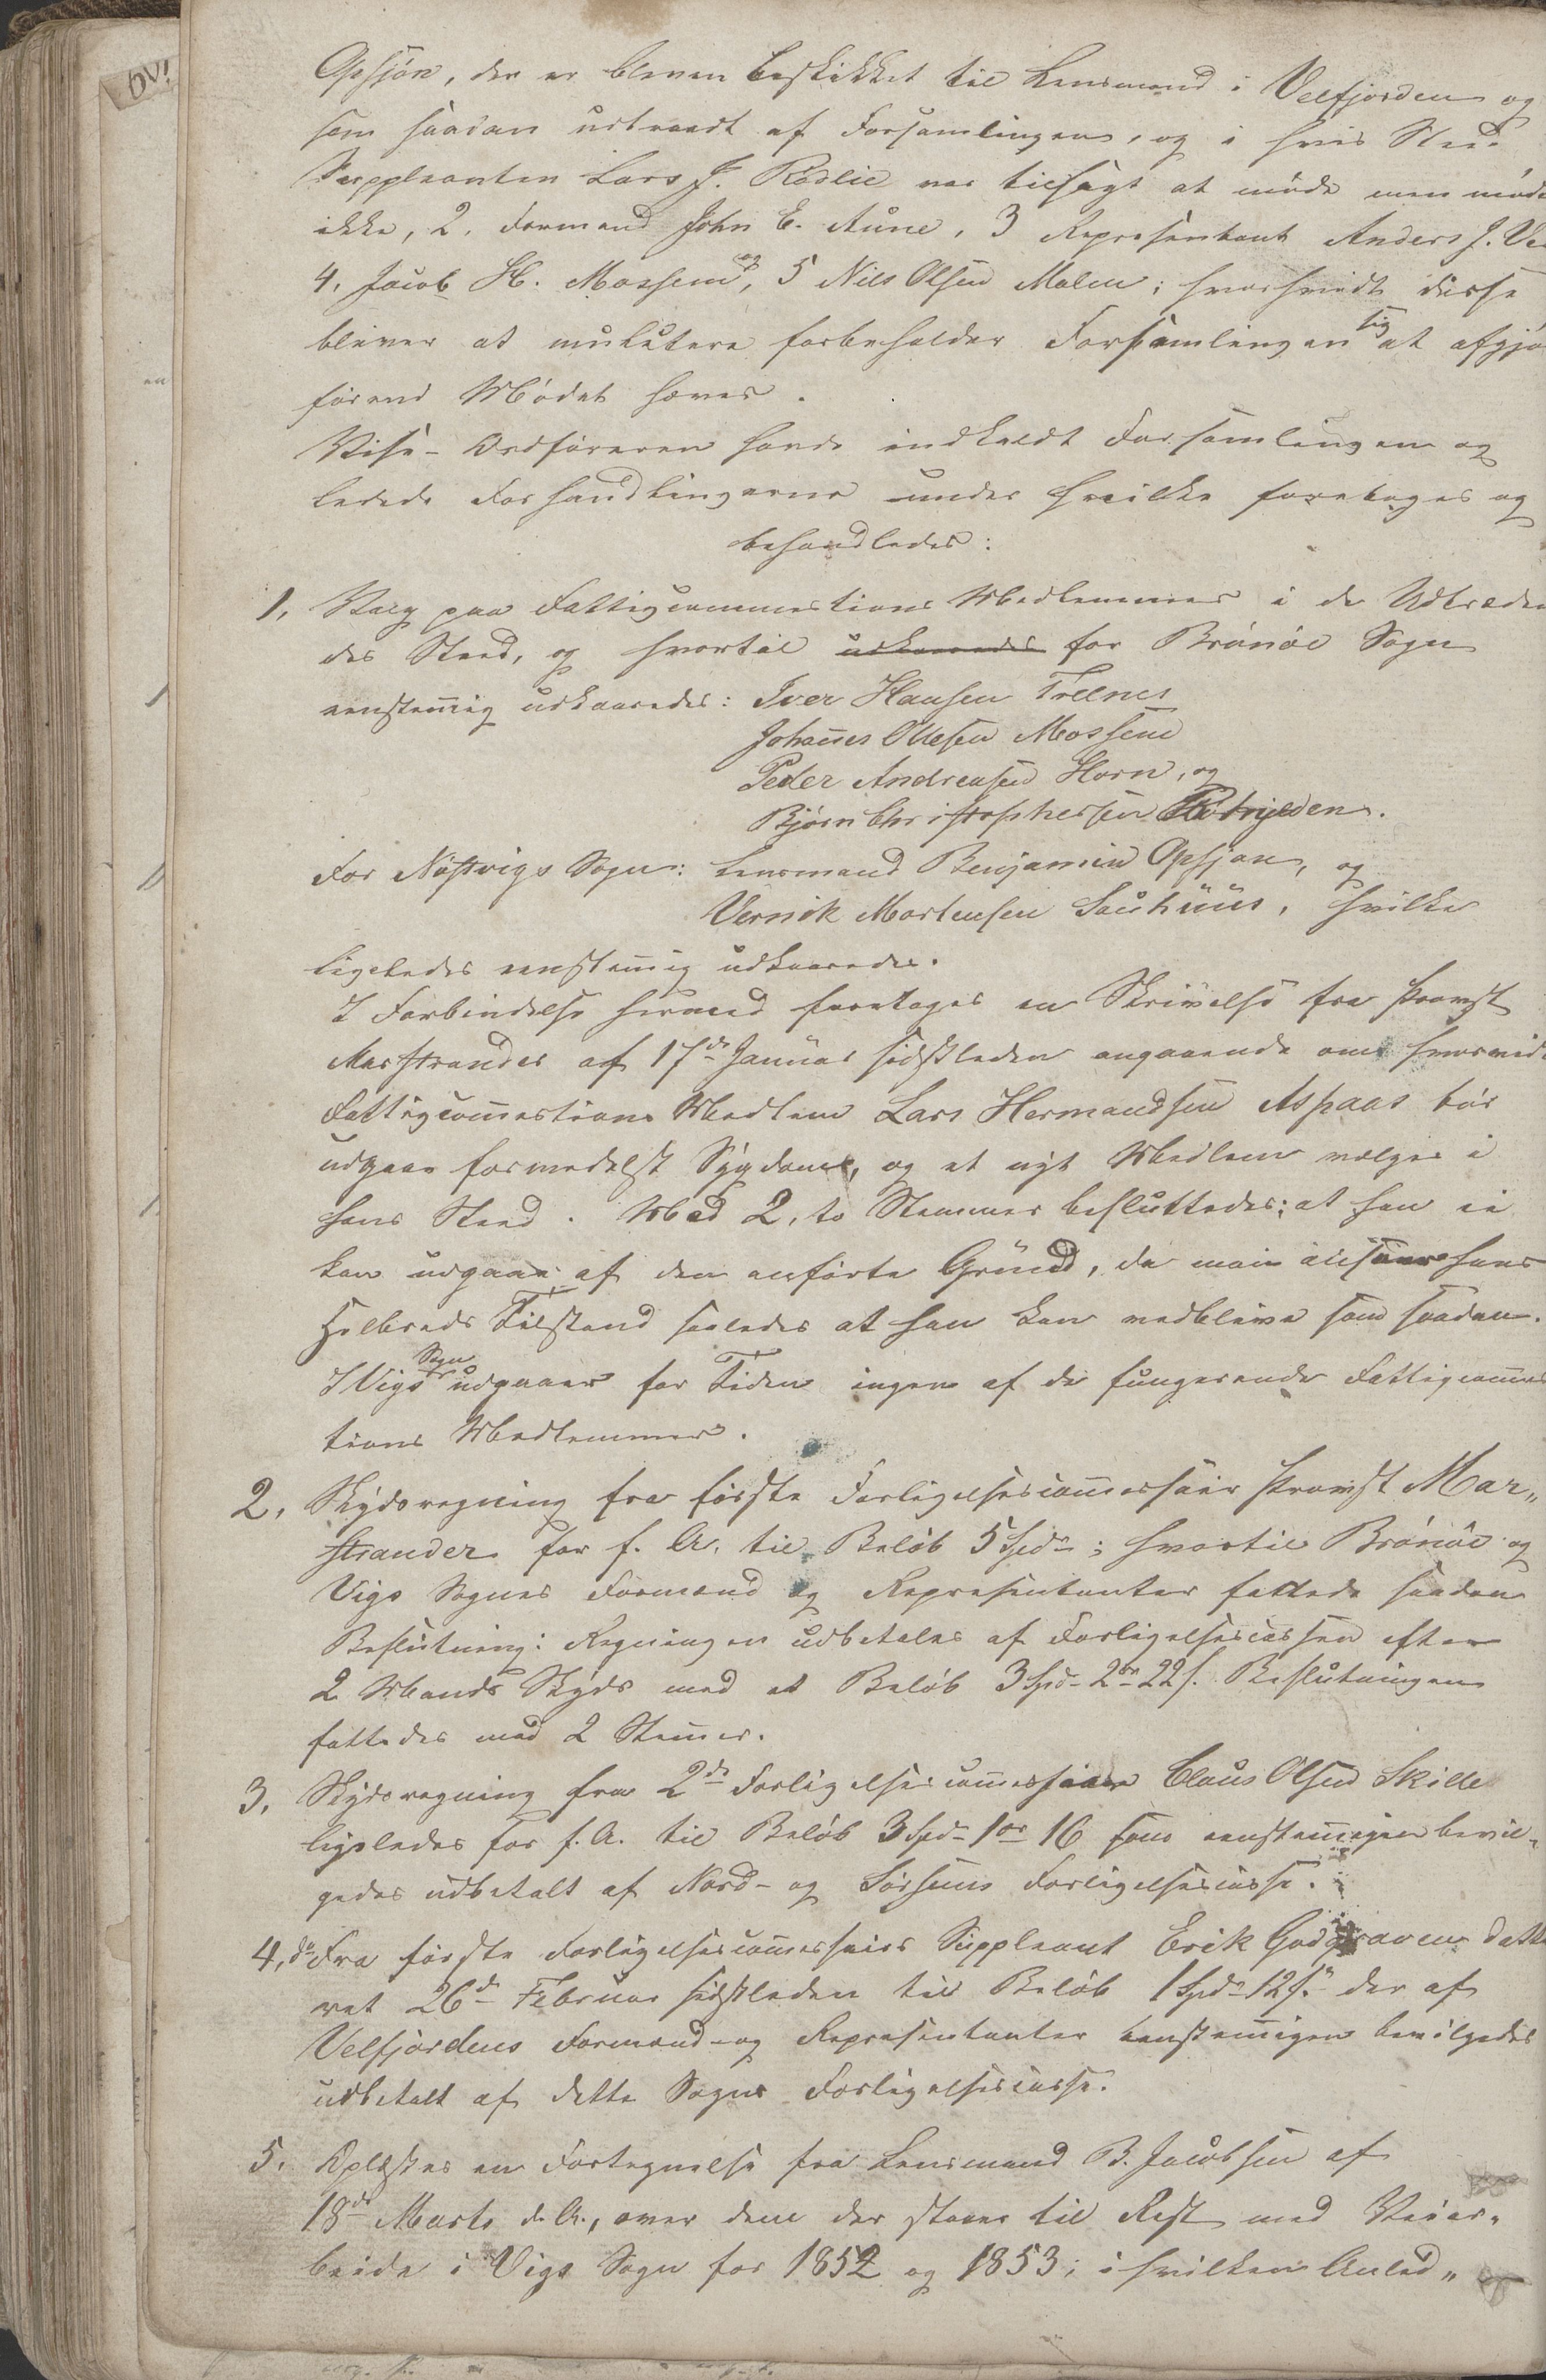 Opsjön, der er bleven beskikket til Lensmand i Velfjorden og
som saadan udtraadt af Forsamlingen, og i hvis Sted
Suppleanten Lars J. Rödlie var tilsagt at möde men mödte
ikke, 2, Formand John E. Aune, 3 Representant Anders J.
4, Jacob H. Mossem og, 5 Nils Olsen Malm; hvorhvidt disse
bliver at mulktere forbeholder Forsamlingen sig at afgjö
förend Mödet hæves.
Vise-Ordföreren havde indkaldt Forsamlingen og
ledede Forhandlingerne under hvilke foretoges og
behandledes:
1, Valg paa Fattigcommissions Medlemmer i de Udtræden
des Sted, og hvortil udkaaredes for Brönöe Sogn
eenstemig udkaaredes: Iver Hansen Trelnes
Johanes Ollesen Mossem
Peder Andreasen Horn, og
Björn Christophersen
For Nöstvigs Sogn: Lensmand Benjamin Opsjön, og
Vernik Mortensen Sauhuus, hvilke
ligeledes eenstemig udkaaredes.
I Forbindelse hermed foretoges en Skrivelse fra Provst
Marstrander af 17de Januar sidstleden angaaende om hvorvidt
Fattigcommissions Medlem Lars Hermandsen Aspaas bör
udgaae formedelst Sygdom, og et nyt Medlem vælges i
hans Sted. Med 2, to Stemmer besluttedes; at han ei
kan udgaae af den anförte Grund, da man anseer hans
Helbreds Tilstand saaledes at han kan vedblive som saadan.
I Vigs Sogn udgaaer for Tiden ingen af de fungerende Fattigcommis
sions Medlemmer.
2, Skydsregning fra förste Forligelsescommissair Provst Mar„
strander for f. A. til Belöb 5 Spd; hvortil Brönöe og
Vigs Sognes Formænd og Representanter fattede saadan
Beslutning: Regningen udbetales af Forligelsescassen efter
2 Mands Skyds med et Belöb 3 Spd 2 or 22 s. Beslutningen
fattedes med 2 Stemer.
3, Skydsregning fra 2den Forligelsescommissair Claus Olsen Skille
ligeledes for f. A. til Belöb 3 Spd 1 or 16 som eenstemigen bevil„
gedes udbetalt af Nord- og Sörhems Forligelsescasse.
4, do Fra förste Forligelsescommissairs Suppleant Erik Godgraven datte
ret 26de Februar sidstleden til Belöb 1 Spd 12 s. der af
Velfjordens Formænd og Representanter eenstemigen bevilgedes
udbetalt af dette Sogns Forligelsescasse.
5. Oplæstes en Fortegnelse fra Lensmand B. Jacobsen af
18de Marts d. A., over dem der staaer til Rest med Veiar„
beide i Vigs Sogn for 1852 og 1853; i hvilken Anled„